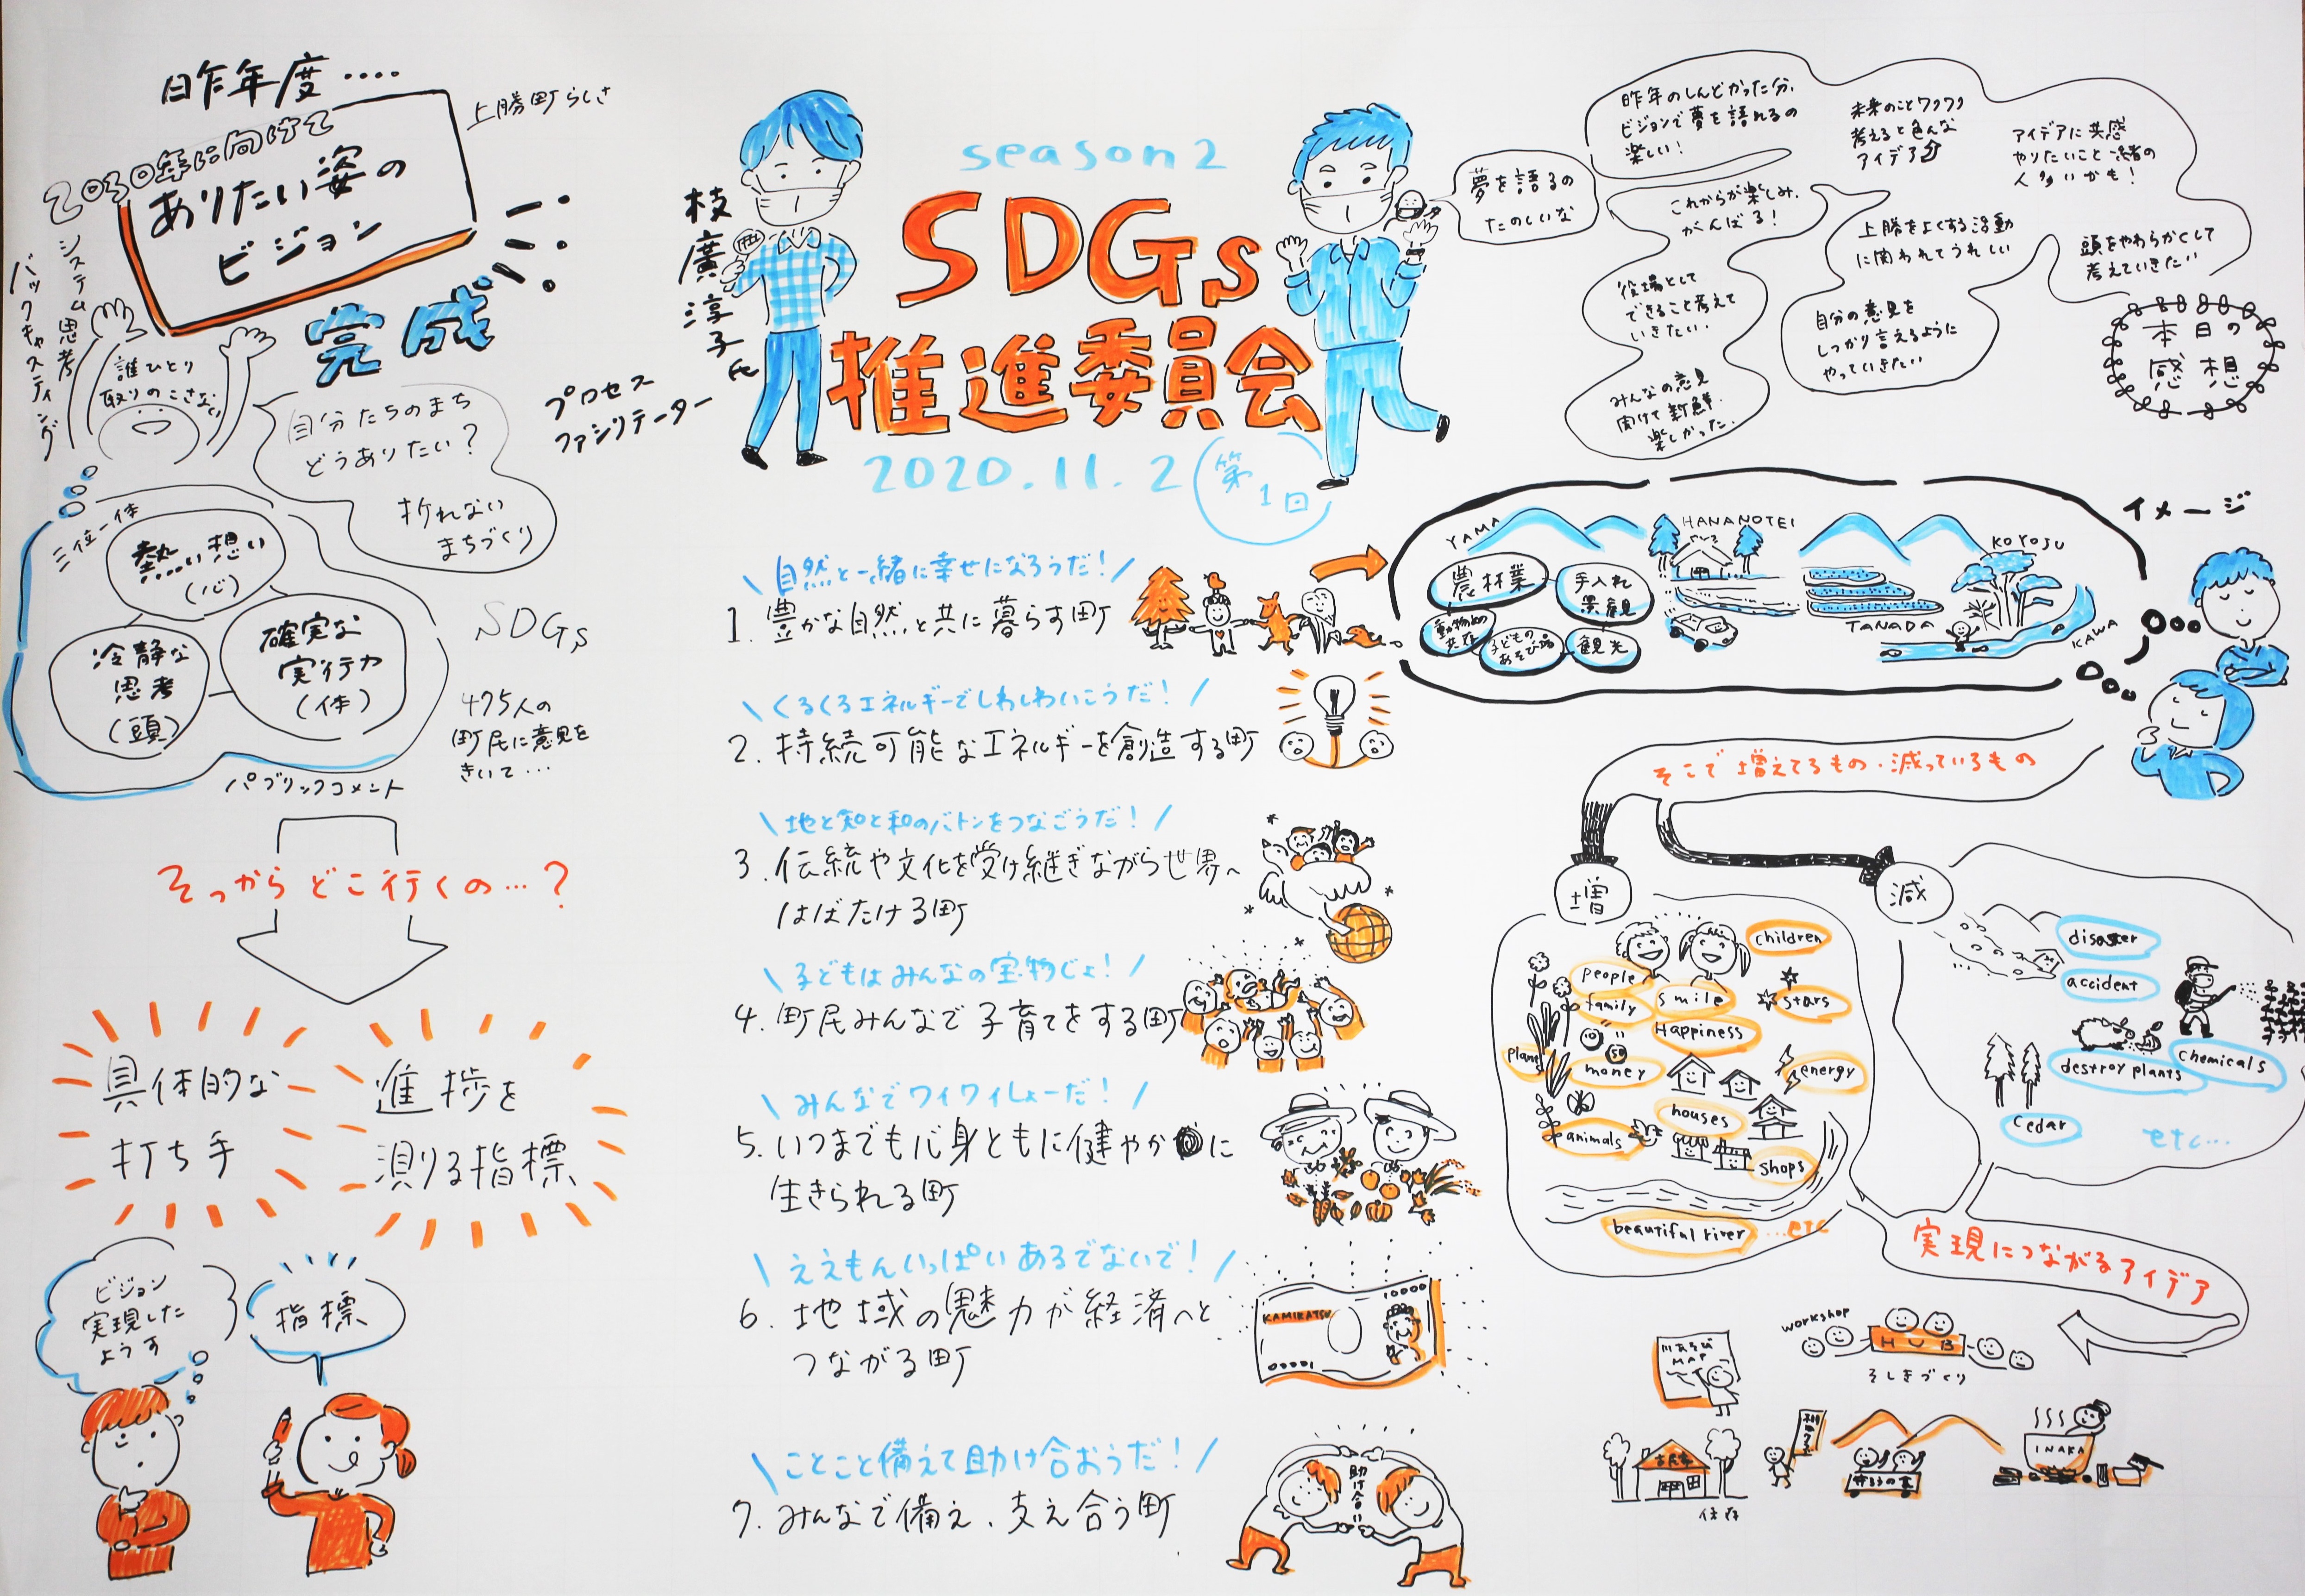 昨年度....
2030年に向けて
ありたい姿の
ビジョン
完成
上勝町らしさ
システム思考
バックキャスティング
誰ひとり
取りのこさない
自分たちのまち
どうありたい?
折れない
まちづくり
三位一体
熱い想い
(心)
冷静な
思考
(頭)
確実な
実行力
(体)
SDGs
475人の
町民に意見を
きいて...
パブリックコメント
そっからどこ行くの...?
具体的な
打ち手
進捗を
測る指標
ビジョン
実現した
ようす
指標
枝廣淳子氏
プロセス
ファシリテーター
season2
SDGs
推進委員会
2020.11.2
第1回
自然と一緒に幸せになろうだ!
1. 豊かな自然と共に暮らす町
くるくるエネルギーでしわしわいこうだ!
2. 持続可能なエネルギーを創造する町
地と知と和のバトンをつなごうだ!
3. 伝統や文化を受け継ぎながら世界へ
はばたける町
子どもはみんなの宝物じょ!
4. 町民みんなで子育てをする町
みんなでワイワイしょーだ!
5. いつまでも心身ともに健やかに
生きられる町
ええもんいっぱいあるでないで!
6. 地域の魅力が経済へと
つながる町
KAMIKATSU
10000
00001
ことこと備えて助け合おうだ!
7. みんなで備え、支え合う町
助け合い
夢を語るの
たのしいな
昨年のしんどかった分、
ビジョンで夢を語れるの
楽しい!
未来のことワクワク
考えると色んな
アイデア
アイデアに共感
やりたいこと一緒の
人多いかも!
これからが楽しみ、
がんばる!
上勝をよくする活動
に関われてうれしい
頭をやわらかくして
考えていきたい
役場として
できること考えて
いきたい.
自分の意見を
しっかり言えるように
やっていきたい
みんなの意見
聞けて新鮮.
楽しかった.
本日の
感想
イメージ
YAMA
HANANOTEI
KOYOJU
TANADA
KAWA
農林業
手入れ
景観
動物との
共存
子どもの
あそび場
観光
そこで増えてるもの・減っているもの
増
減
children
people
family
smile
stars
Happiness
plant
money
energy
houses
animals
shops
beautiful river
...etc
disaster
accident
chemicals
destroy plants
cedar
etc...
実現につながるアイデア
workshop
HUB
そしきづくり
川あそび
MAP
古民家
保存
INAKA